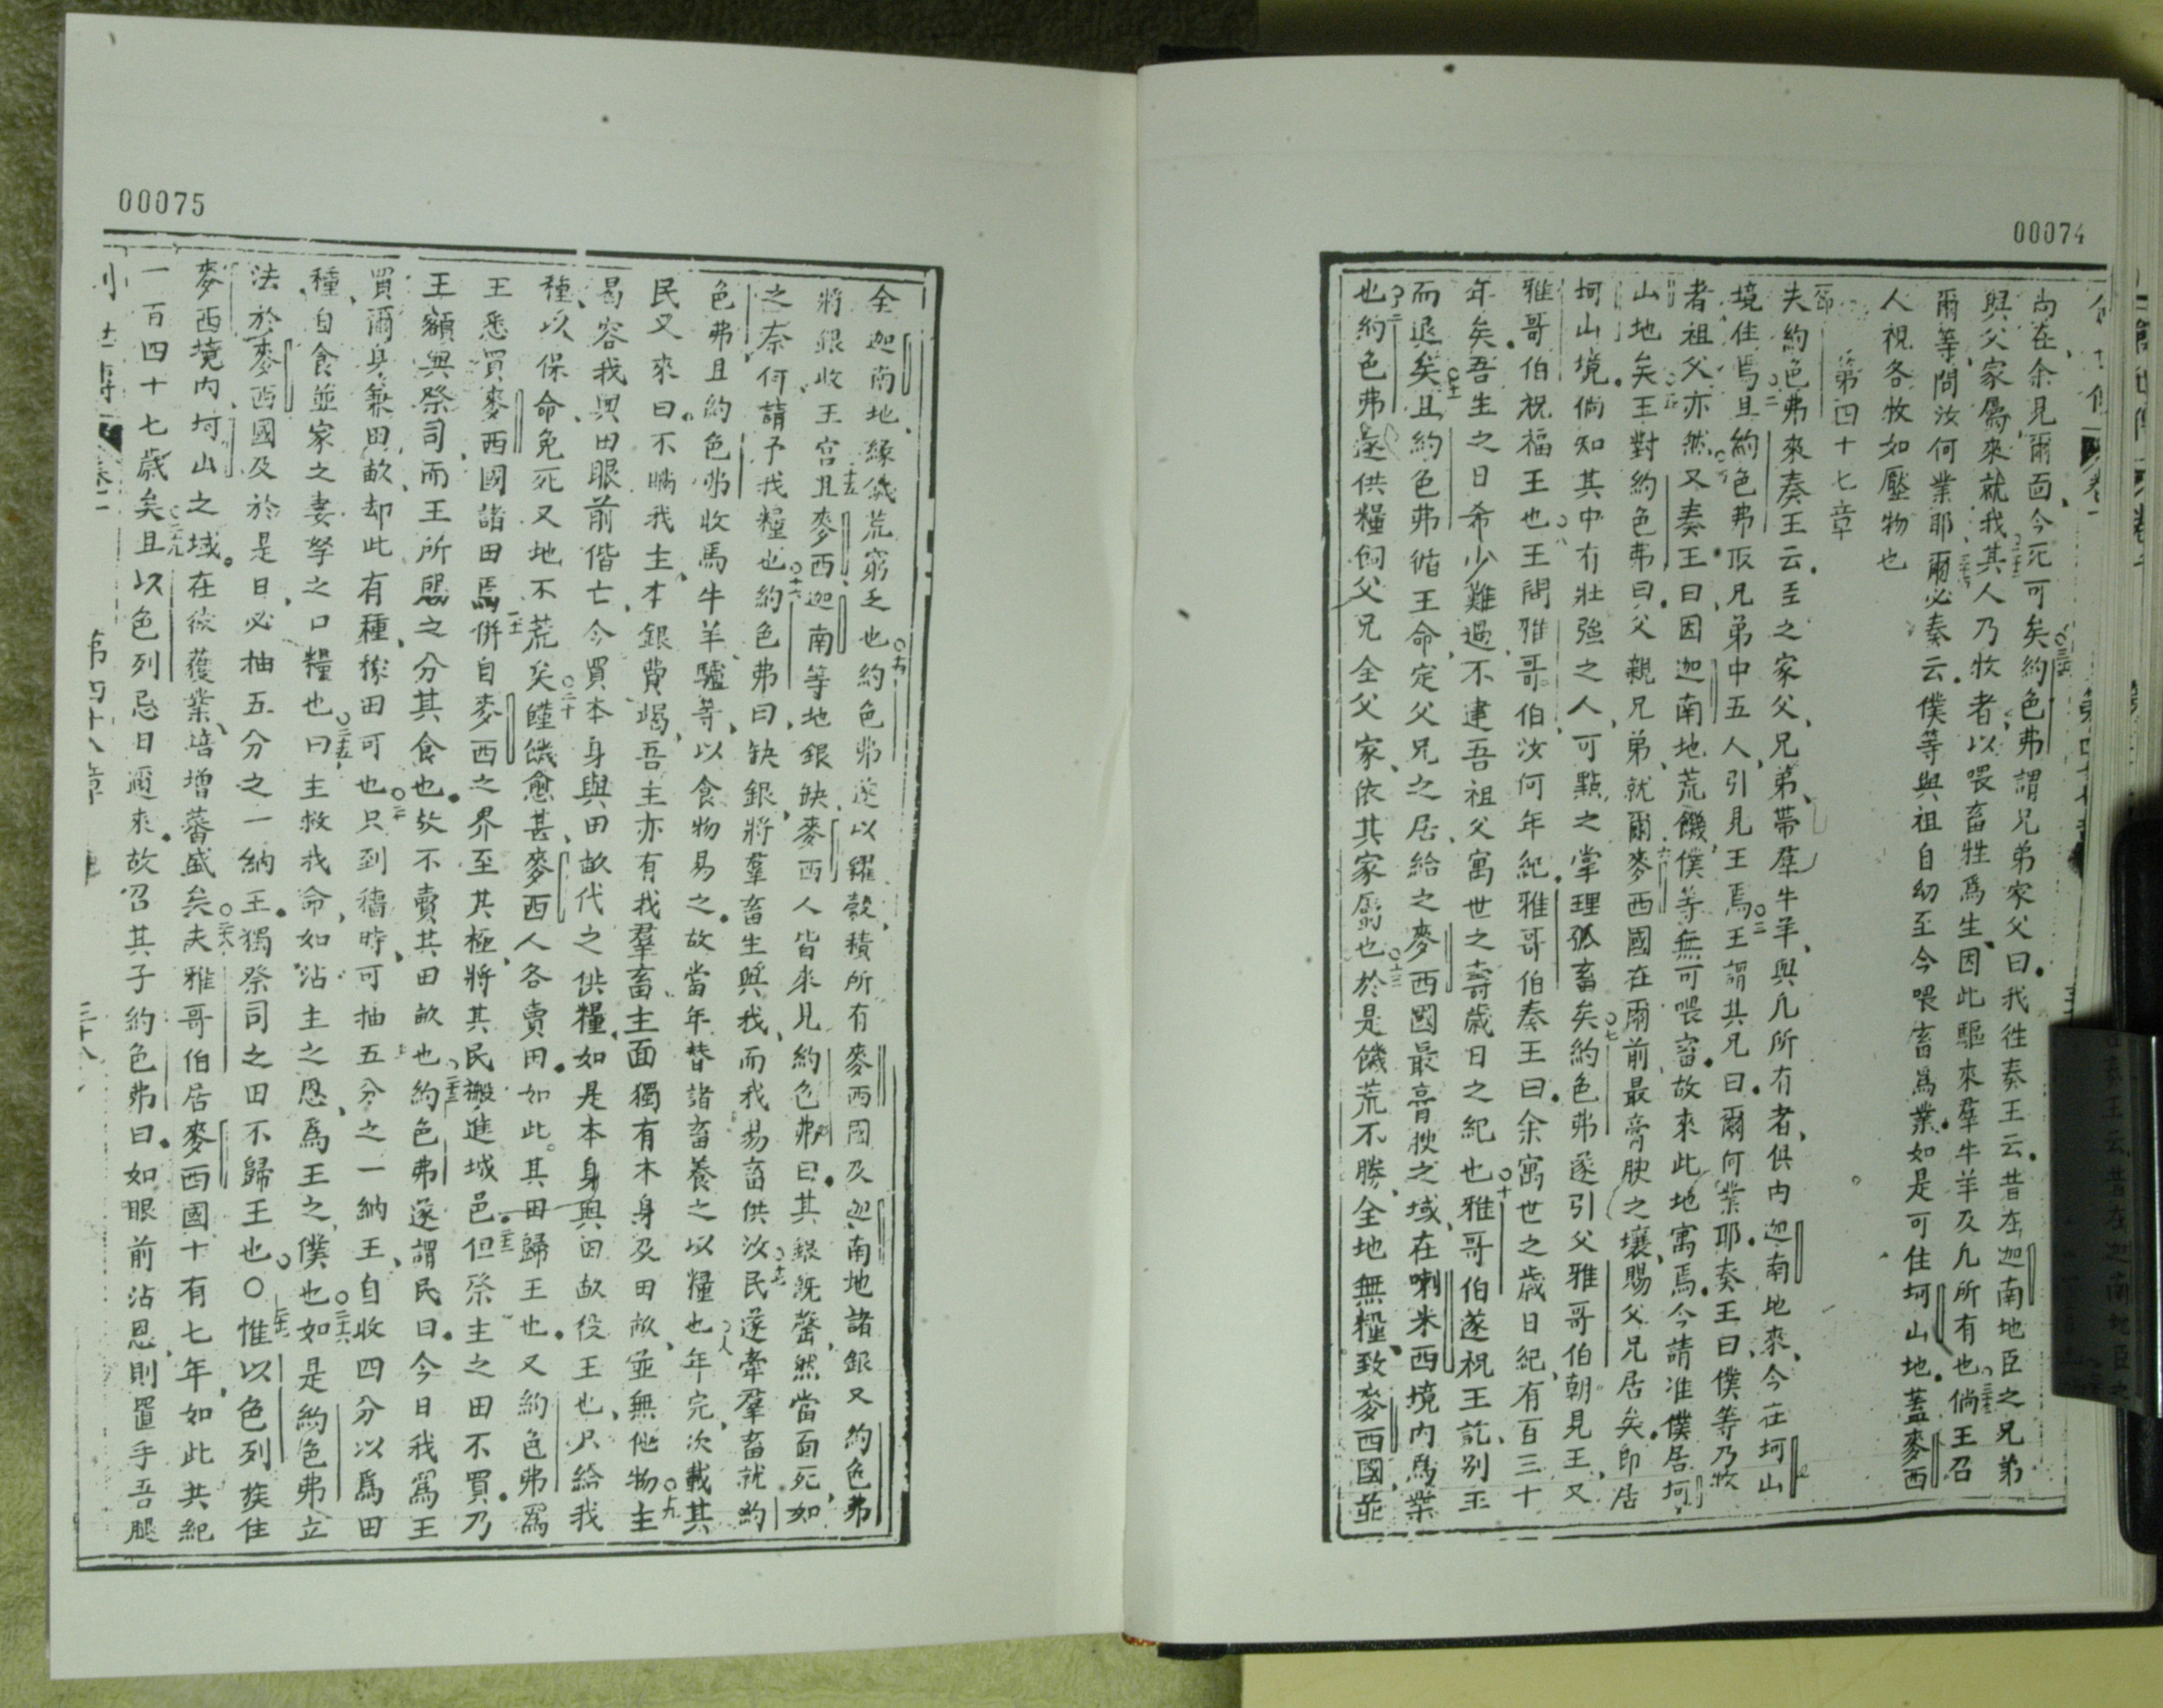 00074
尚在余見爾面今死可矣約色弗謂兄弟家父曰我徃奏王云昔在迦南地臣之兄弟
與父家屬來就我其人乃牧者以喂畜牲爲生因此驅來羣牛羊及凢所有也倘王召
爾等問汝何業耶爾必奏云僕等與祖自幼至今喂畜爲業如是可住坷山地蓋麥西
人視各牧如壓物也
第四十七章
夫約色弗來奏王云至之家父兄弟帶羣牛羊與凢所有者俱內迦南地來今在坷山
境住焉且約色弗取兄弟中五人引見王焉王謂其兄曰爾何業耶奏王曰僕等乃牧
者祖父亦然又奏王曰因迦南地荒饑僕等無可喂畜故來此地寓焉今請准僕居坷
山地矣王對約色弗曰父親兄弟就爾麥西國在爾前最膏腴之壤賜父兄居矣即居
坷山境倘知其中有壯強之人可點之掌理孤畜矣約色弗遂引父雅哥伯朝見王又
雅哥伯祝福王也王問雅哥伯汝何年紀雅哥伯奏王曰余寓世之歲日紀有百三十
年矣吾生之日希少難過不逮吾祖父寓世之壽歲日之紀也雅哥伯遂祝王訖別王
而退矣且約色弗循王命定父兄之居給之麥西國最膏腴之域在喇米西境內爲業
也約色弗遂供糧飼父兄全父家依其家屬也於是饑荒不勝全地無糧致麥西國並
00075
全迦南地緣饑荒窮乏也約色弗遂以糶穀積所有麥西國及迦南地諸銀又約色弗
將銀收王宮且麥西迦南等地銀缺麥西人皆來見約色弗曰其銀旣罄然當面死如
之奈何請予我糧也約色弗曰缺銀將羣畜生與我而我易畜供汝民遂牽羣畜就約
色弗且約色弗收馬牛羊驢等以食物易之故當年替諸畜養之以糧也年完次載其
民又來曰不瞞我主本銀費竭吾主亦有我羣畜主面獨有本身及田畝並無他物主
曷容我與田眼前偕亡今買本身與田畝代之供糧如是本身與田畝役王也只給我
種以保命免死又地不荒矣饉饑愈甚麥西人各賣田如此其田歸王也又約色弗爲
王悉買麥西國諸田焉併自麥西之界至其極將其民搬進城邑但祭主之田不買乃
王額與祭司而王所賜之分其食也故不賣其田畝也約色弗遂謂民曰今日我爲王
買爾身兼田畝却此有種稼田可也只到穡時可抽五分之一納王自收四分以爲田
種自食並家之妻孥之口糧也曰主救我命如沾主之恩爲王之僕也如是約色弗立
法於麥西國及於是日必抽五分之一納王獨祭司之田不歸王也〇惟以色列族住
麥西境內坷山之域在彼獲業培增蕃盛矣夫雅哥伯居麥西國十有七年如此共紀
一百四十七歲矣且以色列忌日邇來故召其子約色弗曰如眼前沾恩則置手吾腿
第四十八章
三十八